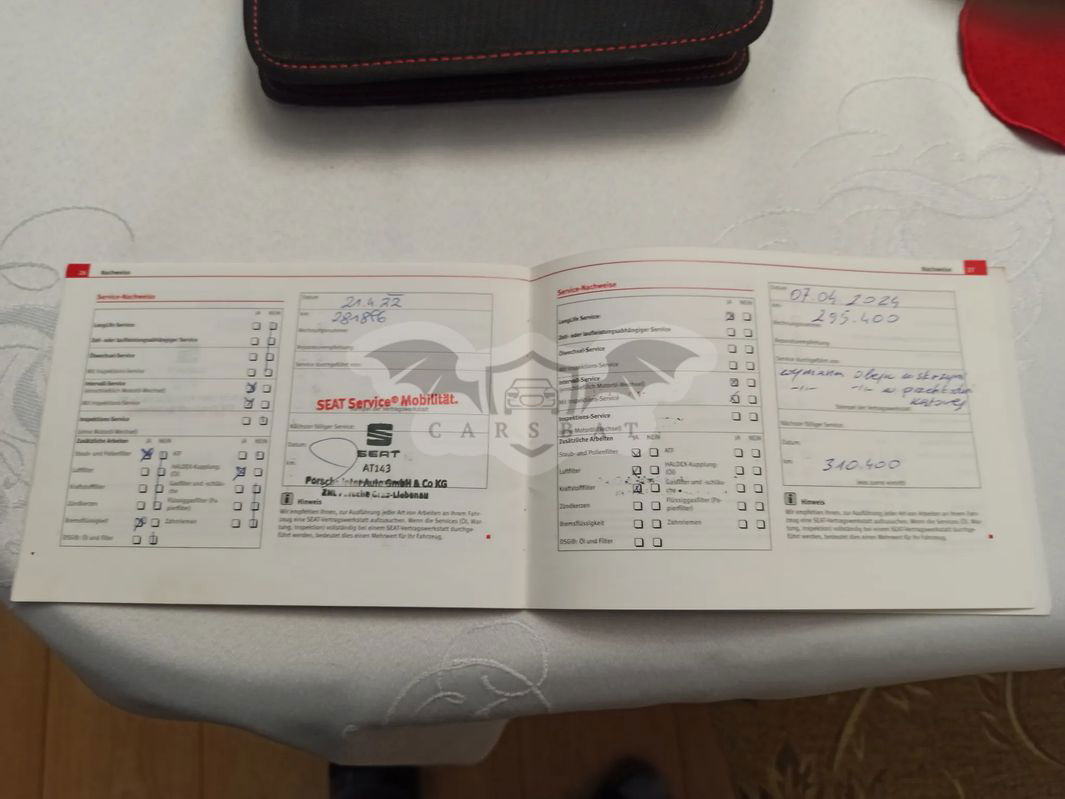 26 Nachweise
Service-Nachweise
JA NEIN
LongLife Service:
Zeit- oder laufleistungsabhängiger Service
Ölwechsel-Service
Mit Inspektions-Service
Intervall-Service
(einschließlich Motoröl-Wechsel)
Mit Inspektions-Service
Inspektions-Service
(ohne Motoröl-Wechsel)
Zusätzliche Arbeiten JA NEIN JA NEIN
Staub- und Pollenfilter ATF
Luftfilter HALDEX-Kupplung: (Öl)
Kraftstofffilter
Zündkerzen
Bremsflüssigkeit Zahnriemen
DSG®: Öl und Filter
Datum 21.4.22
km: 281866
Rechnungsnummer:
Reparaturempfehlung:
Service durchgeführt von:
SEAT Service® Mobilität.
Nächster fälliger Service:
SEAT
AT143
Datum:
km:
Porsche Inter Auto GmbH & Co KG
Hinweis
Wir empfehlen Ihnen, zur Ausführung jeder Art von Arbeiten an Ihrem Fahr-
zeug eine SEAT-Vertragswerkstatt aufzusuchen. Wenn die Services (Öl, War-
tung, Inspektion) vollständig bei einem SEAT-Vertragswerkstatt durchge-
führt werden, bedeutet dies einen Mehrwert für Ihr Fahrzeug.
Nachweise 27
Service-Nachweise
JA NEIN
LongLife Service:
Zeit- oder laufleistungsabhängiger Service
Ölwechsel-Service
Mit Inspektions-Service
Intervall-Service
(einschließlich Motoröl-Wechsel)
Mit Inspektions-Service
Inspektions-Service
Zusätzliche Arbeiten JA NEIN JA NEIN
Staub- und Pollenfilter ATF
Luftfilter HALDEX-Kupplung: (Öl)
Kraftstofffilter
Zündkerzen
Bremsflüssigkeit Zahnriemen
DSG®: Öl und Filter
Datum 07.04.2024
km: 295.400
Rechnungsnummer:
Reparaturempfehlung:
Service durchgeführt von:
wymiana oleju w skrzyni
-11- -11- w
Stempel der Vertragswerkstatt
Nächster fälliger Service:
Datum:
km: 310.400
(was zuerst eintritt)
Hinweis
Wir empfehlen Ihnen, zur Ausführung jeder Art von Arbeiten an Ihrem Fahr-
zeug eine SEAT-Vertragswerkstatt aufzusuchen. Wenn die Services (Öl, War-
tung, Inspektion) vollständig bei einem SEAT-Vertragswerkstatt durchge-
führt werden, bedeutet dies einen Mehrwert für Ihr Fahrzeug.
CARSBAT